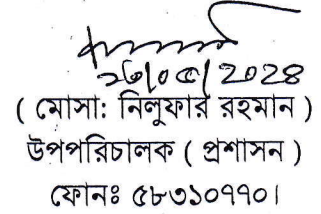 ২৬/০৫/2০২৪
( মোসা: নিলুফার রহমান )
উপপরিচালক ( প্রশাসন )
ফোনঃ ৫৮৩১০৭৭০।